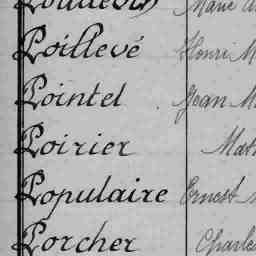 Poillevé Henri M
Pointel Jean M
Poirier Math
Populaire Ernest
Porcher Charles